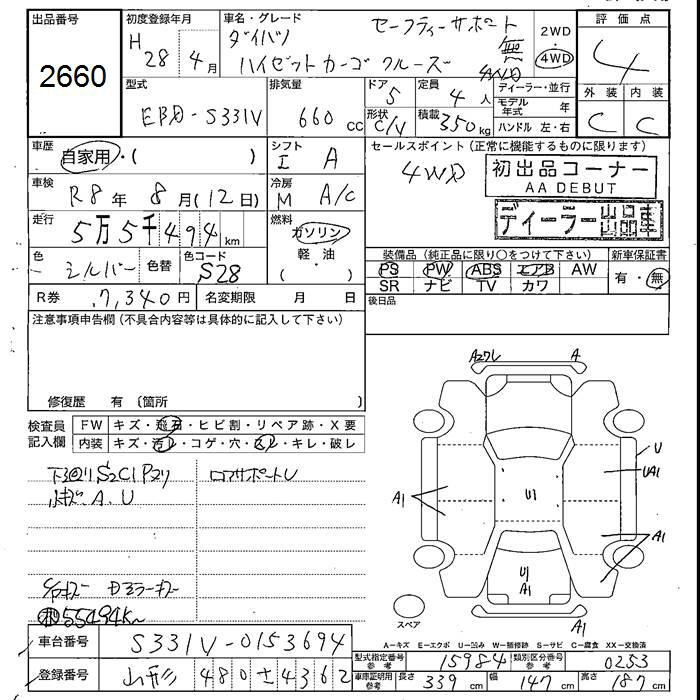 出品番号
2660
初度登録年月
H 28 年 4 月
車名・グレード
セーフティーサポート 無
ダイハツ
ハイゼットカーゴ クルーズ 4WD
2WD
4WD
評価点
4
外装 内装
C C
型式
EBD-S331V
排気量
660 cc
ドア
5
定員
4 人
形状
C/V
積載
350 kg
ディーラー・並行
モデル年式 年
ハンドル 左・右
車歴
自家用・( )
シフト
I A
車検
R8 年 8 月(12日)
冷房
M A/C
走行
5万5千494 km
燃料
ガソリン
軽・油
( )
色
シルバー 色替
色コード
S28
R券 7,340円
名変期限 月 日
セールスポイント(正常に機能するものに限ります)
4WD
初出品コーナー
AA DEBUT
ディーラー出品車
装備品(純正品に限り○をつけて下さい)
新車保証書
PS PW ABS エアB AW
有・無
SR ナビ TV カワ
後日品
注意事項申告欄(不具合内容等は具体的に記入して下さい)
修復歴 有〔箇所
検査員
記入欄
FW キズ・飛石・ヒビ割・リペア跡・X要
内装 キズ・汚レ・コゲ・穴・スレ・キレ・破レ
下廻り S2C1Pヌリ
小キズ A.U
ロアサポートU
55494K~
A2ワレ
A
U
UA1
A1
U1
A1
U1
A1
A1
スペア
A=キズ E=エクボ U=凹み W=補修跡 S=サビ C=腐食 XX=交換済
車台番号
S331V-0153694
登録番号
山形 480 ± 4362
型式指定番号
参考
15984
類別区分番号
参考
0253
車庫証明用
参考
長さ 339 cm
幅 147 cm
高さ 187 cm